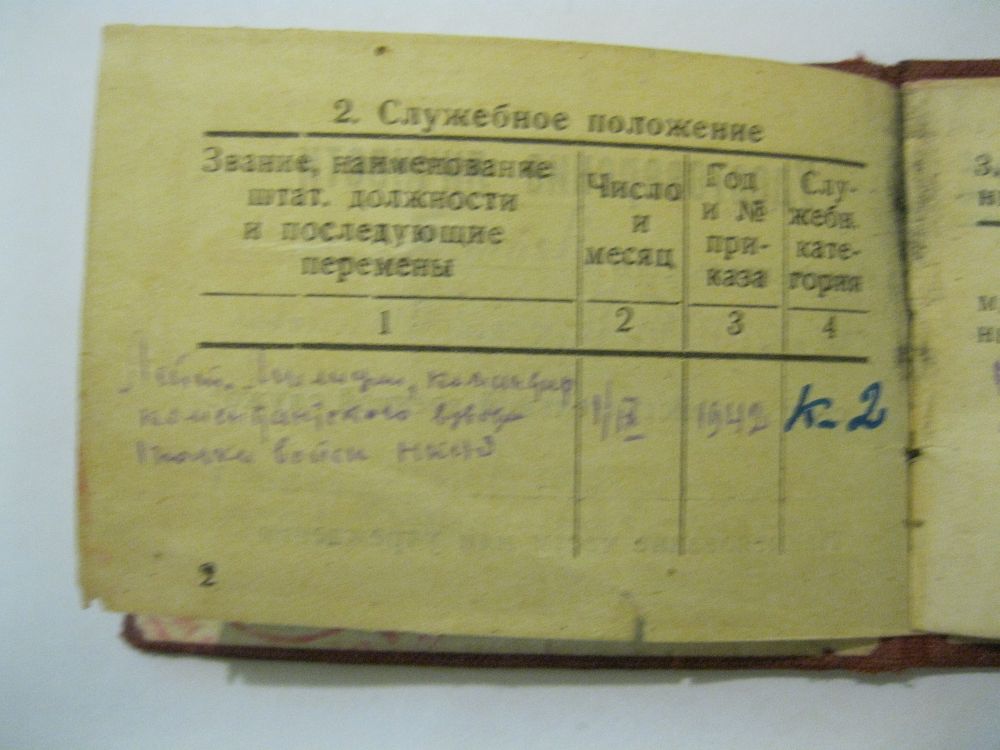 2. Служебное положение
Звание, наименование
штат. должности
и последующие
перемены
Число
и
месяц
Год
и №
при-
каза
Слу-
жебн.
кате-
гория
1
2
3
4
комендантского взвода
полка войск НКВД
1/IX
1942
К-2
2